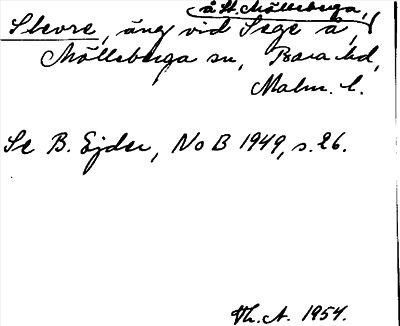 å St. Mölleberga,
Stevre, äng vid Sege å,
Mölleberga sn, Bara hd,
Malm. l.
Se B. Ejder, NoB 1949, s. 26.
Th. A. 1954.